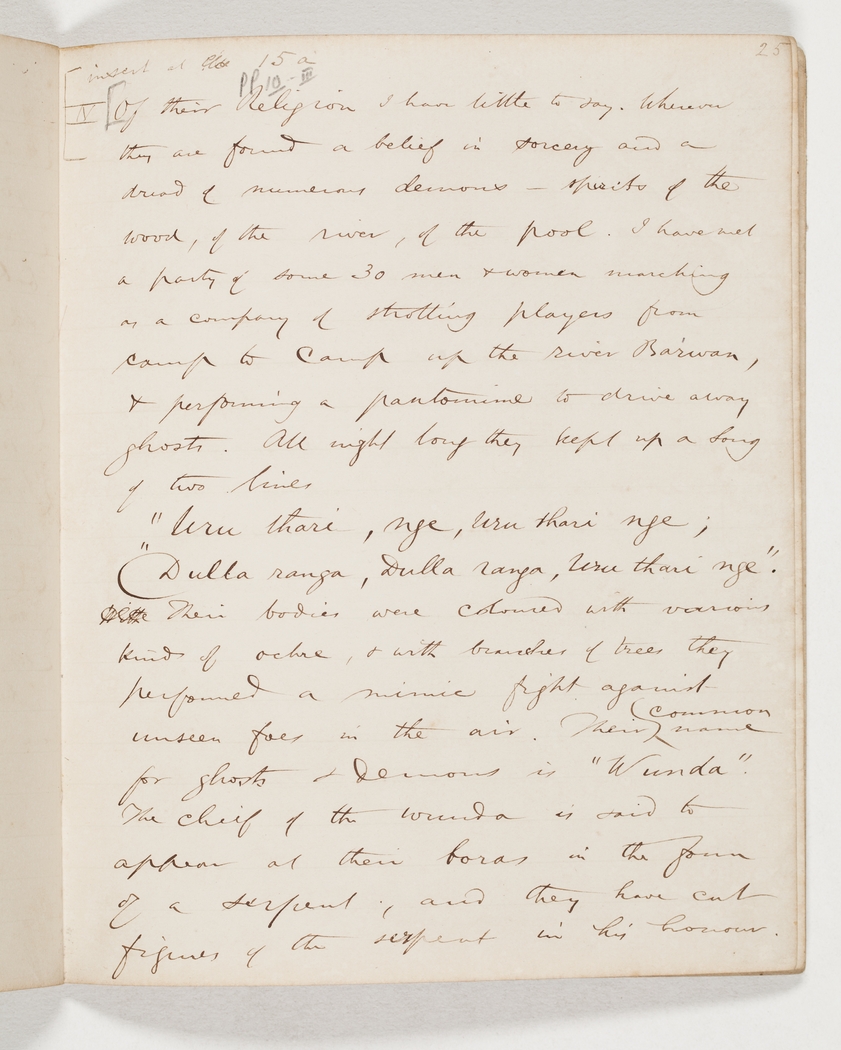 25
insert at 15 a
PP. 10 - III
IV [Of their Religion I have little to say. Wherever
they are found a belief in sorcery and a
dread of numerous demons – spirits of the
wood, of the river, of the pool. I have met
a party of some 30 men & women marching
as a company of strolling players from
camp to Camp up the river Bárwan,
& performing a pantomime to drive away
ghosts. All night long they kept up a song
of two lines
"Uru thari, nge, Uru thari nge;
"Dulla ranga, Dulla ranga, Uru thari nge".
Their bodies were coloured with various
kinds of ochre, & with branches of trees they
performed a mimic fight against
unseen foes in the air. Their (common
name
for ghosts & Demons is "Wunda".
The chief of the wunda is said to
appear at their boras in the form
of a serpent; and they have cut
figures of the serpent in his honour.